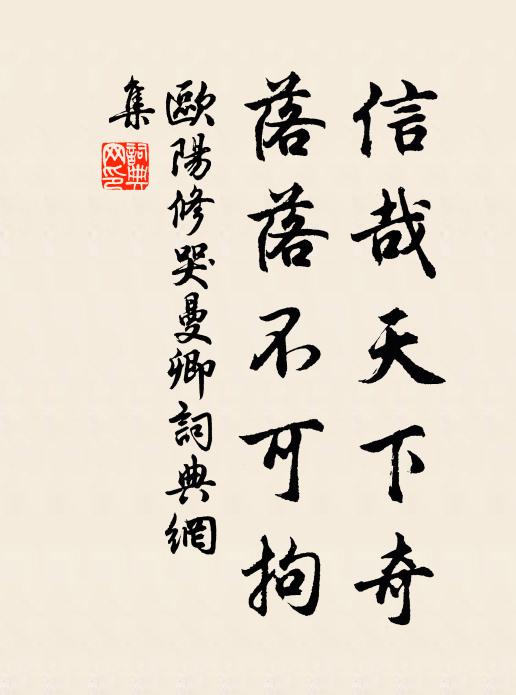 信哉天下奇
落落不可拘
歐陽修哭曼卿詞典網
集
詞典網印